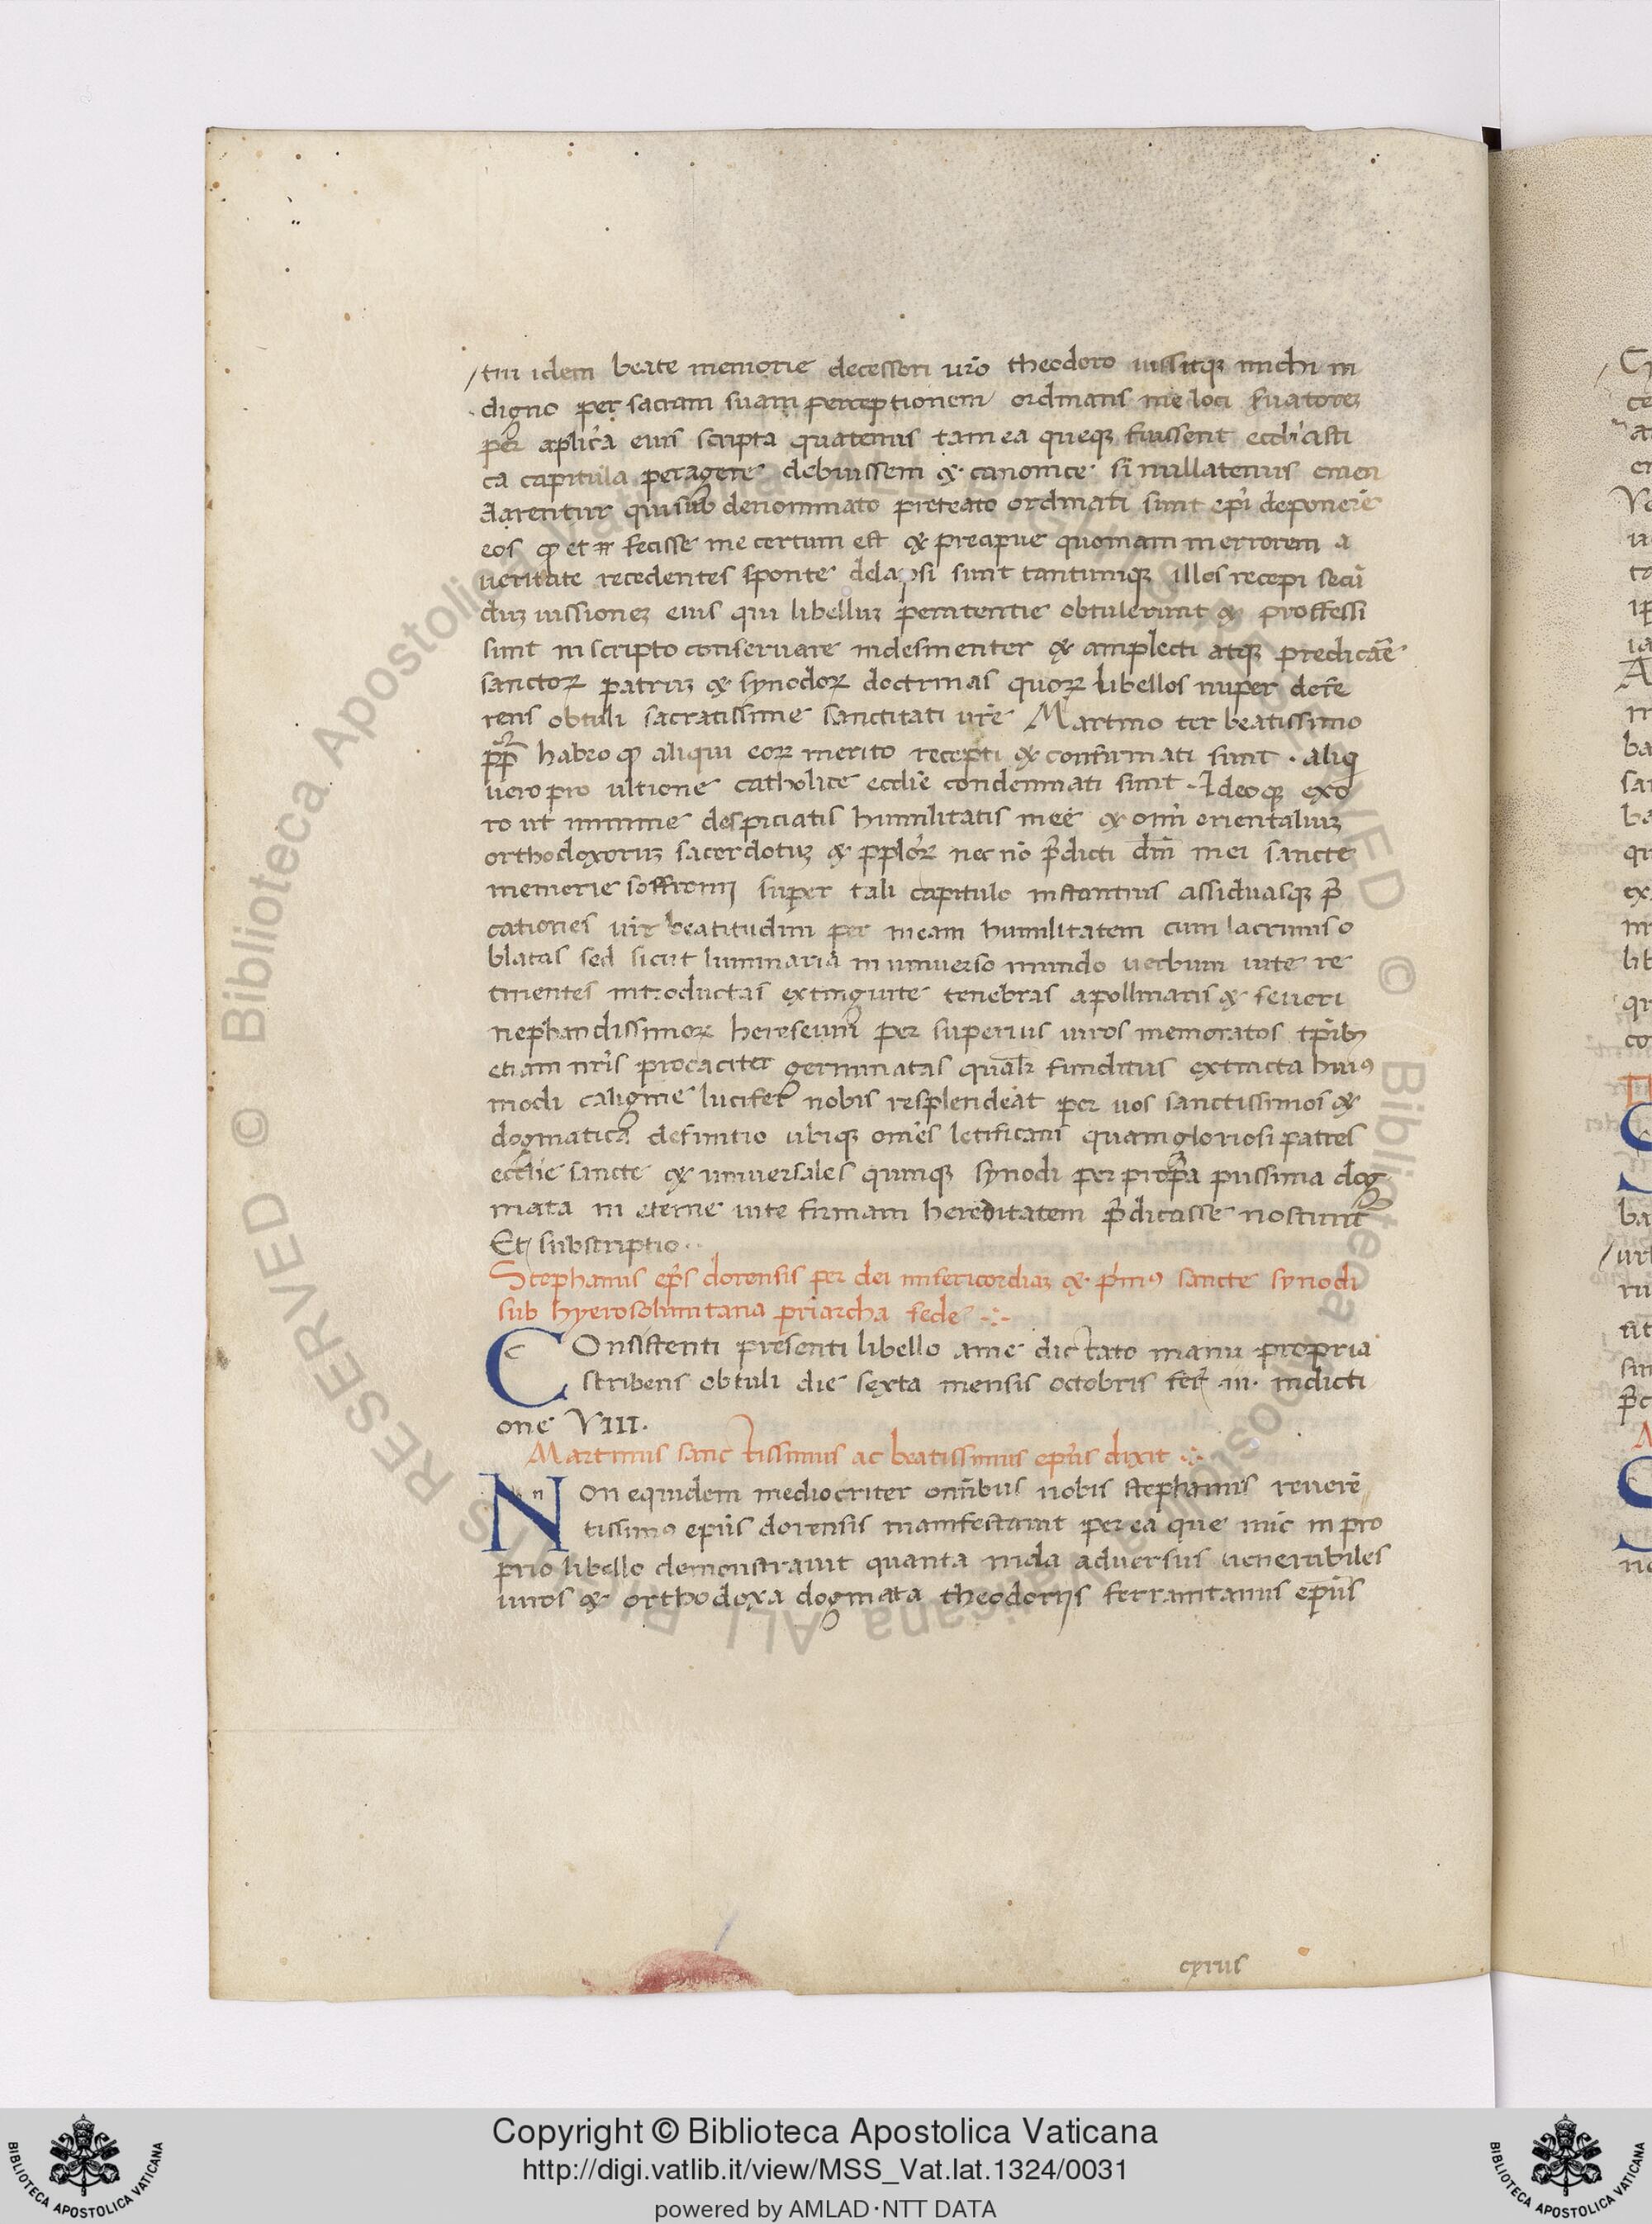 tui idem beate memorie decessori uro theodoro iussitq; michi in
digno per sacram suam perceptionem ordinans me loci seruatorez
per aplica eius scripta quatenus tam ea queq; fuissent ecclīasti
ca capitula peragere debuissem & canonice si nullatenus emen
darentur qui sub denominato preteato ordinati sunt epī deponere
eos qd et fecisse me certum est & precipue quoniam in errorem a
ueritate recedentes sponte delapsi sunt tantumq; illos recepi secū
duz iussionez eius qui libelluz penitentie obtulerunt & proffessi
sunt in scripto conseruare indesinenter & amplecti atq; predicāē
sanctoꝝ patruz & synodoꝝ doctrinas quoꝝ libellos nuper defe
rens obtuli sacratissime sanctitati urē Martino ter beatissimo
habeo qd aliqui eoꝝ merito recepti & confirmati sunt . aliq
uero pro ultione catholice ecclīe condemnati sunt . Ideoq; exo
ro ut minime despiciatis humilitatis meē & omī orientaliuz
orthodoxoruz sacerdotuz & pploꝝ nec nō pdicti dm̄ mei sancte
memorie soffronij super tali capitulo instantius assiduasq; p̄
cationes ur̄e beatitudini per meam humilitatem cum lacrimis o
blatas sed sicut luminaria in uniuerso mundo uerbum uite re
tinentes introductas extinguite tenebras apollinaris & seueri
nephandissimoꝝ hereseum per superius uiros memoratos tp̄ib;
etiam nr̄is procaciter germinatas qual̄r funditus extincta huiꝰ
modi caligine lucifer nobis resplendeat per uos sanctissimos &
dogmatica definitio ubiq; om̄es letificans quam gloriosi patres
ecclīe sancte & uniuersales quinq; synodi per prop̄a piissima dog
mata in eterne uite firmam hereditatem p̄dicasse noscunt̄
Et subscriptio .
Stephanus ep̄s dorensis per dei misericordiaz & p̄muꝰ sancte synodi
sub hyerosolimitana priarcha sede
COnsistenti presenti libello a me dictato manu propria
scribens obtuli die sexta mensis octobris fer̄ .iii. indicti
one VIII.
Martinus sanctissimus ac beatissimus ep̄us dixit
NOn equidem mediocriter om̄ibus uobis stephanus reuerē
tissimꝰ ep̄us dorensis manifestauit per ea que nūc in pro
prio libello demonstrauit quanta mala aduersus uenerabiles
uiros & orthodoxa dogmata theodorus ferranitanus ep̄us
Copyright © Biblioteca Apostolica Vaticana
http://digi.vatlib.it/view/MSS_Vat.lat.1324/0031
powered by AMLAD·NTT DATA
BIBLIOTECA APOSTOLICA VATICANA
BIBLIOTECA APOSTOLICA VATICANA